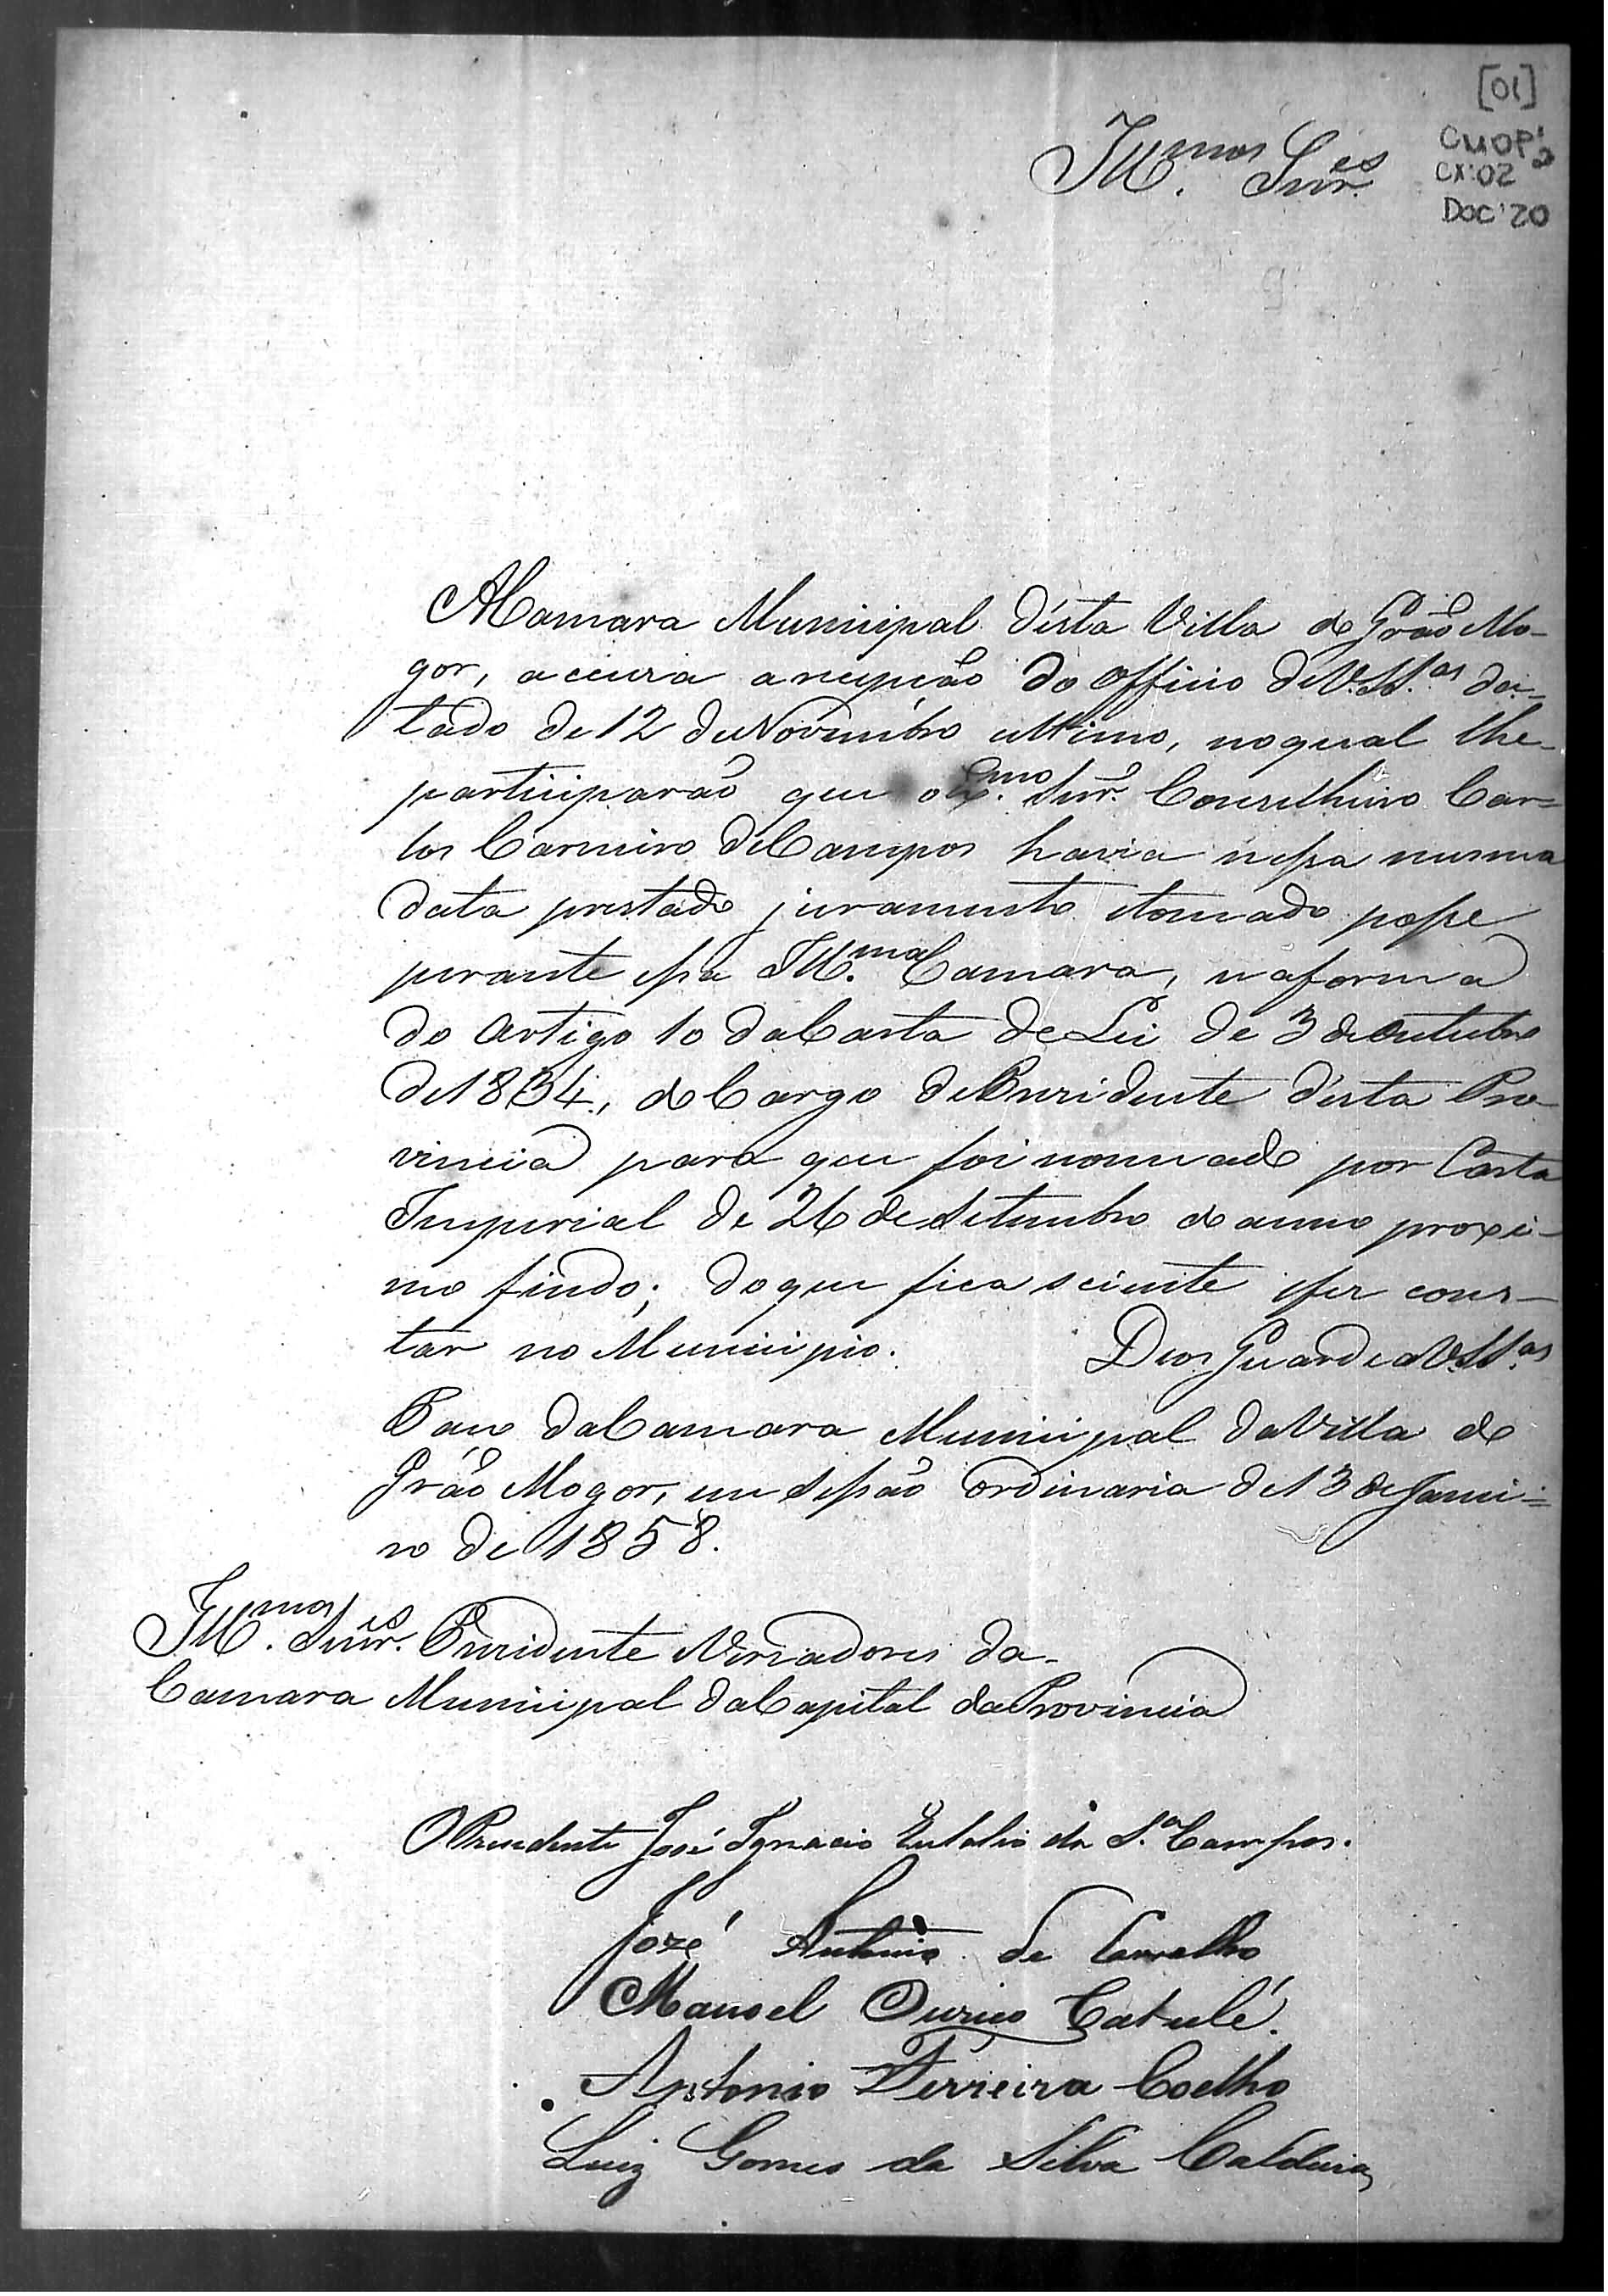 [01]
CMOP
CX: 02
DOC: 20
Ill.mos Snr.es
A Camara Municipal d'esta Villa de Grão Mo-
gor, accusa a recepção do officio de V. SS.as da-
tado de 12 de Novembro ultimo, no qual lhe
participarão que o Ex.mo Snr. Conselheiro Car-
los Carneiro de Campos havia nessa mesma
data prestado juramento e tomado posse
perante essa Ill.ma Camara, na forma
do Artigo 10 da Carta de Lei de 3 de Outubro
de 1834, do Cargo de Presidente d'esta Pro-
vincia para que foi nomeado por Carta
Imperial de 26 de Setembro do anno proxi-
mo findo; do que fica sciente e fez cons-
tar no Municipio. Deos Guarde a V. SS.as
Paço da Camara Municipal da Villa de
Grão Mogor, em sessão ordinaria de 13 de Janei-
ro de 1858.
Ill.mos Snr.es Presidente e Vereadores da
Camara Municipal da Capital da Provincia
O Presidente José Ignacio Eulalio da S.a Campos.
José Antonio de Carvalho
Manoel Ourico Catulé.
Antonio Ferreira Coelho
Luiz Gomes da Silva Caldeira